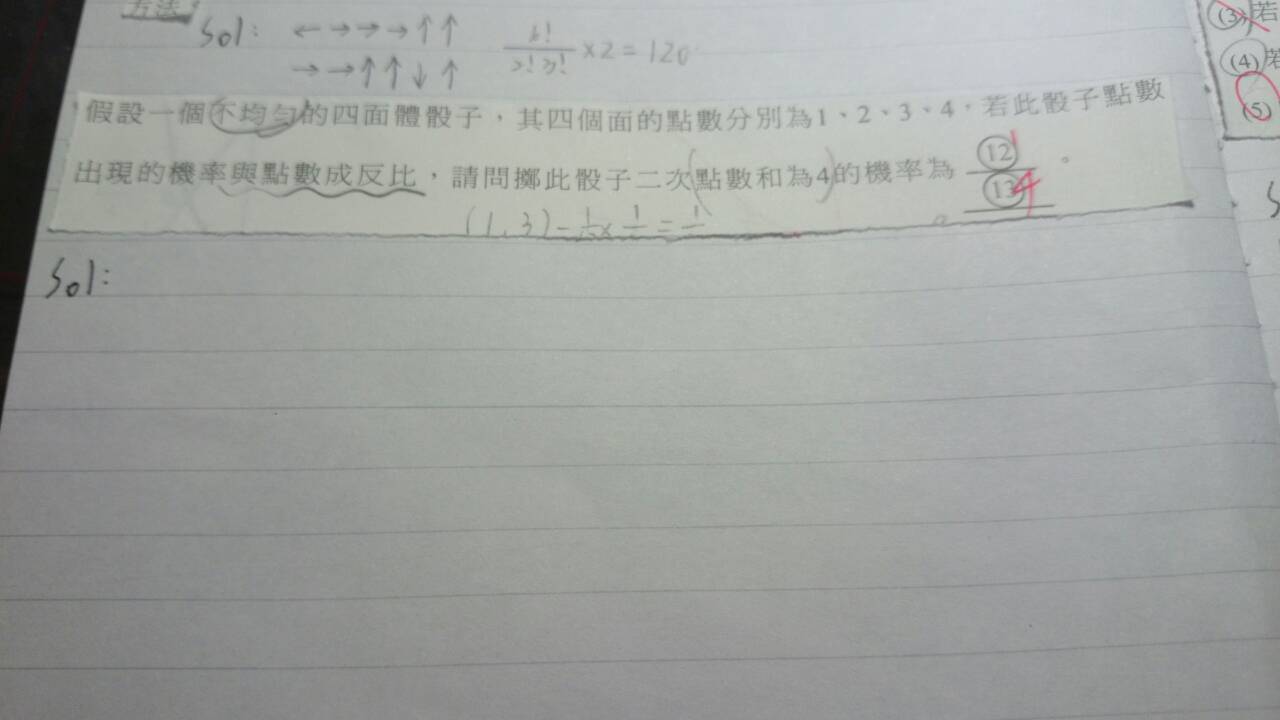 方法
Sol: ←→→→↑↑ 6!/3!2! ×2=120
→→↑↑↓↑
假設一個不均勻的四面體骰子，其四個面的點數分別為1、2、3、4，若此骰子點數
出現的機率與點數成反比，請問擲此骰子二次(點數和為4)的機率為 ⑫1/⑬4 。
(1,3)
Sol:
(3)若
(4)若
(5)